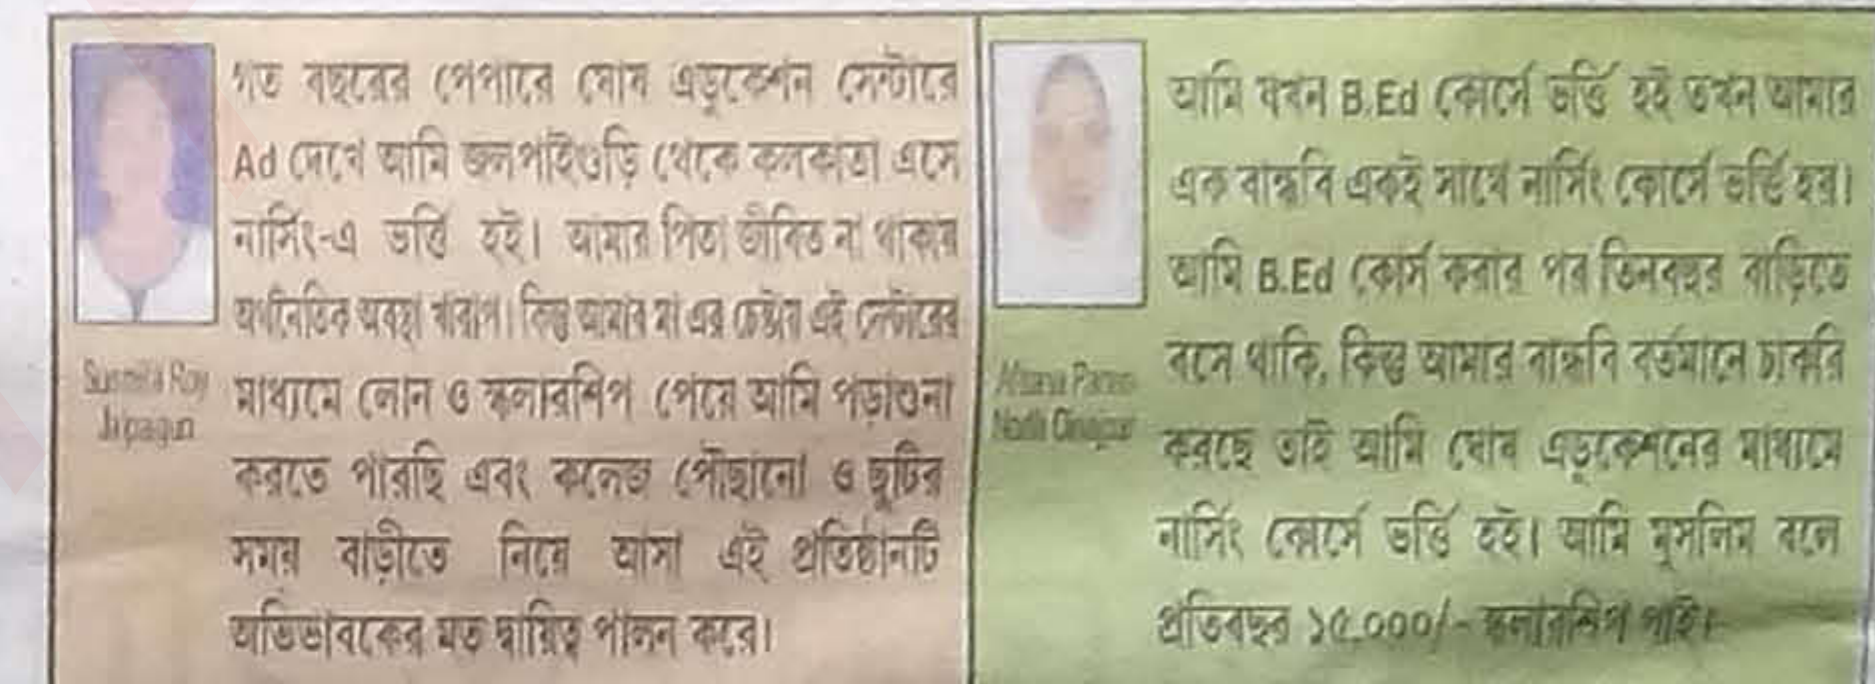 গত বছরের পেপারে ঘোষ এডুকেশন সেন্টারে
Ad দেখে আমি জলপাইগুড়ি থেকে কলকাতা এসে
নার্সিং-এ ভর্ত্তি হই। আমার পিতা জীবিত না থাকায়
অর্থনৈতিক অবস্থা খারাপ। কিন্তু আমার মা এর চেষ্টায় এই সেন্টারের
মাধ্যমে লোন ও স্কলারশিপ পেয়ে আমি পড়াশুনা
করতে পারছি এবং কলেজ পৌঁছানো ও ছুটির
সময় বাড়ীতে নিয়ে আসা এই প্রতিষ্ঠানটি
অভিভাবকের মত দ্বায়িত্ব পালন করে।
Susmita Roy
আমি যখন B.Ed কোর্সে ভর্ত্তি হই তখন আমার
এক বান্ধবি একই সাথে নার্সিং কোর্সে ভর্ত্তি হয়।
আমি B.Ed কোর্স করার পর তিনবছর বাড়িতে
বসে থাকি, কিন্তু আমার বান্ধবি বর্তমানে চাকরি
করছে তাই আমি ঘোষ এডুকেশনের মাধ্যমে
নার্সিং কোর্সে ভর্ত্তি হই। আমি মুসলিম বলে
প্রতিবছর ১৫,০০০/- স্কলারশিপ পাই।
North Dinajpur